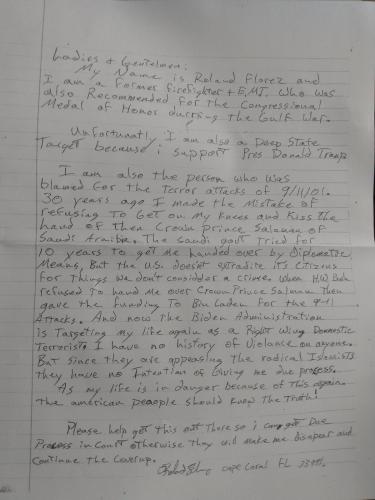 Ladies & Gentelmen:
My Name is Roland Florez and
I am a Former Firefighter + EMT who was
also Recommended for the Congressional
Medal of Honor durring the Gulf War.
Unfortunatly I am also a Deep State
Target because i support Pres Donald Trump
I am also the person who was
blamed for the Terror attacks of 9/11/01.
30 years ago I made the Mistake of
refusing To Get on My Knees and Kiss the
hand of then Crown prince Salaman of
Saudi Arabia. The Saudi govt Tried for
10 years to get me handed over by Diplomatic
Means, But the U.S. doesnt extradite its Citizens
for Things we don't considder a Crime. When HW Bush
refused To hand me over Crown Prince Salman Then
gave the funding To Bin Laden for the 9-11
Attacks. And now the Biden Administration
is Targeting my life again as a Right Wing Domestic
Terrorist. I have no history of Violance on anyone.
But since they are appeasing the radical Islamists
they have no Intention of Giving me due process.
As my life is in danger because of This again.
the american peaople should know the Truth!
Please help get this out There so i can get Due
Process in Court otherwise They will make me disapear and
Continue the Coverup. Cape Coral FL